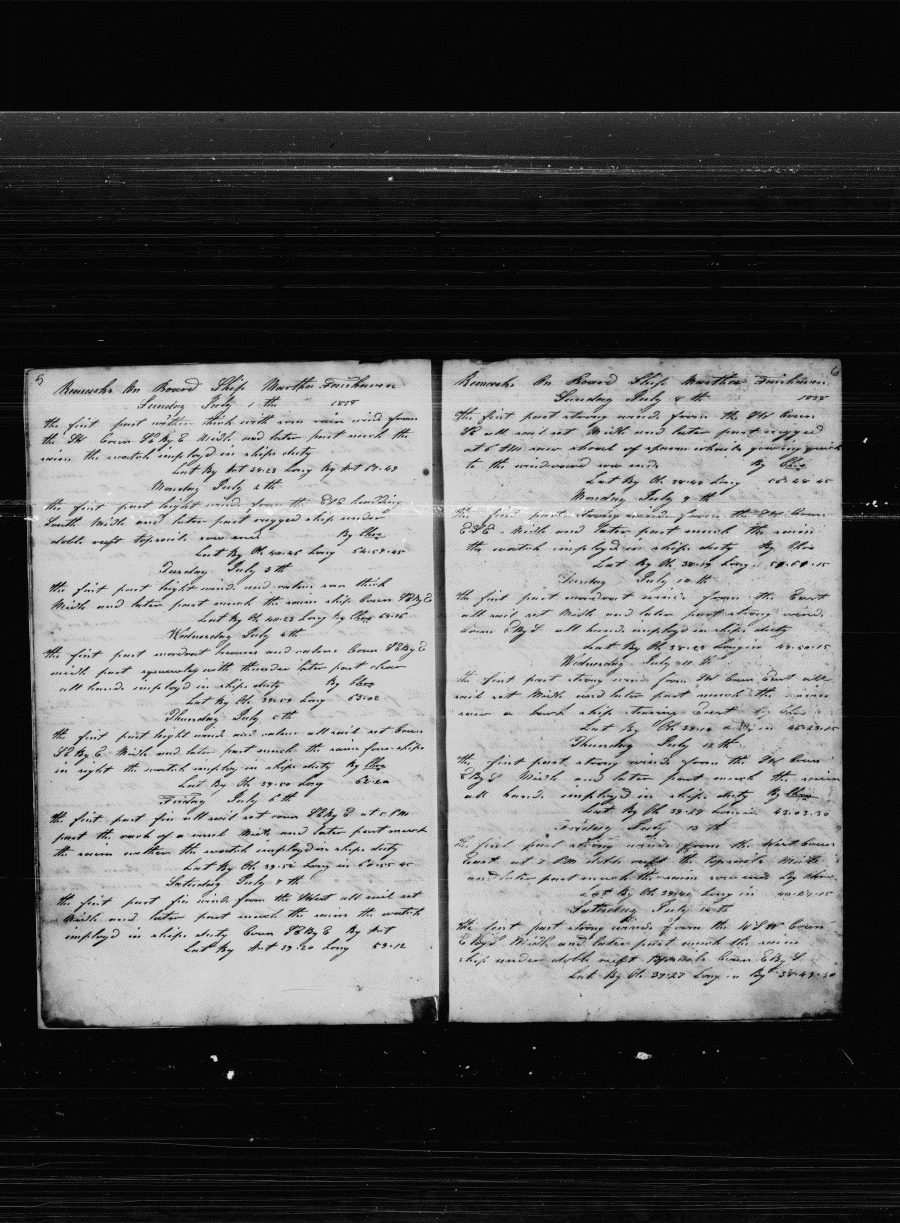 5
Remarks On Board Ship Martha Fairhaven
Sunday July 1 th 1838
the first part wether thick with som rain wind from
the SW Corse SE By E Midle and later part much the
saim the watch imployd in ships duty
Lat By Act 42.23 Long By Act 54.49
Monday July 2th
the first part light winds from the ESE headding
South Midle and later part ruged ship under
doble reeft topsails so end By Chro
Lat By Ob 40.45 Long 54.54.45
Tuesday July 3th
the first part light winds and calm som thick
Midle and later part much the saim ship Corse SE By E
Lat By Ob 40.23 Long By Chro
Wednesday July 4th
the first part modrat breases and calms Corse SE By E
midle part squarley with thunder later part clear
all hands imployd in ships duty By Chro
Lat By Ob Long 53.02
Thursday July 5th
the first part light winds and calms all sail set Corse
SE By E Midle and later part much the saim four ships
in sight the watch imploy in ships duty By Chro
Lat By Ob 39.50 Long
Friday July 6th
the first part fin all sail set corse SE By E at 5 PM
past the rack of a vesel Midle and later part much
the saim wether the watch imployd in ships duty
Lat By Ob 39.52 Long in
Saturday July 7th
the first part fin winds from the West all sail set
Midle and later part much the saim the watch
imployd in ships duty Corse SE By E By Act
Lat By Act 39.20 Long 53.12
6
Remarks On Board Ship Martha Fairhaven
Sunday July 8 th 1838
the first part strong winds from the SW Corse
SE all sail set Midle and later part ruged
at 6 AM saw shoal of sparm whails gowing quick
to the windward so ends By Chro
Lat By Ob 38.49 Long
Monday July 9th
the first part strong winds from the SW Corse
ESE Midle and later part much the saim
the watch imployd in ships duty By Chro
Lat By Ob 38.19 Long 50.50.15
Tuesday July 10th
the first part modrat winds from the East
all sail set Midle and later part strong winds
Corse E By S all hands imployd in ships duty
Lat By Ob 38.23 Long in
Wednesday July 11th
the first part strong winds from SW Corse East all
sail set Midle and later part much the saim
saw a bark ship stearing East By Chro
Lat By Ob
Thursday July 12th
the first part strong winds from the SW Corse
E By S Midle and later part much the saim
all hands imployd in ships duty By Chro
Lat By Ob Long in 43.03.30
Friday July 13th
the first part strong winds from the West Corse
East at 7 PM doble reeft the topsails Midle
and later part much the saim so end By Chro
Lat By Ob Long in
Saturday July 14th
the first part strong winds from the WSW Corse
E By S Midle and later part much the saim
ship under doble reeft topsails Corse E By S
Lat By Ob 39.27 Long in By 38.43.30